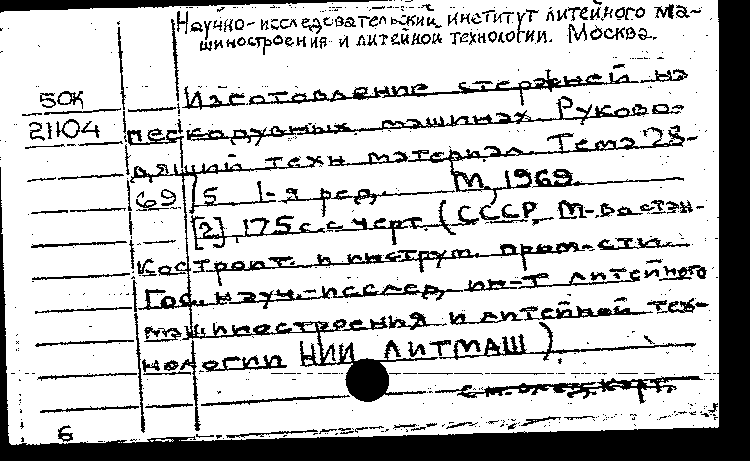 Научно-исследовательский институт литейного ма-
шиностроения и литейной технологии. Москва.
50К Изготовление стержней на
21104 пескодувных машинах. Руково-
дящий техн. материал. Тема 28-
69/5. 1-я ред. М., 1969.
[2], 175 с. с черт. (СССР. М-во стан-
костроит. и инструм. пром-сти.
Гос. науч.-исслед. ин-т литейного
машиностроения и литейной тех-
нологии НИИЛИТМАШ).
См. след. карт.
6